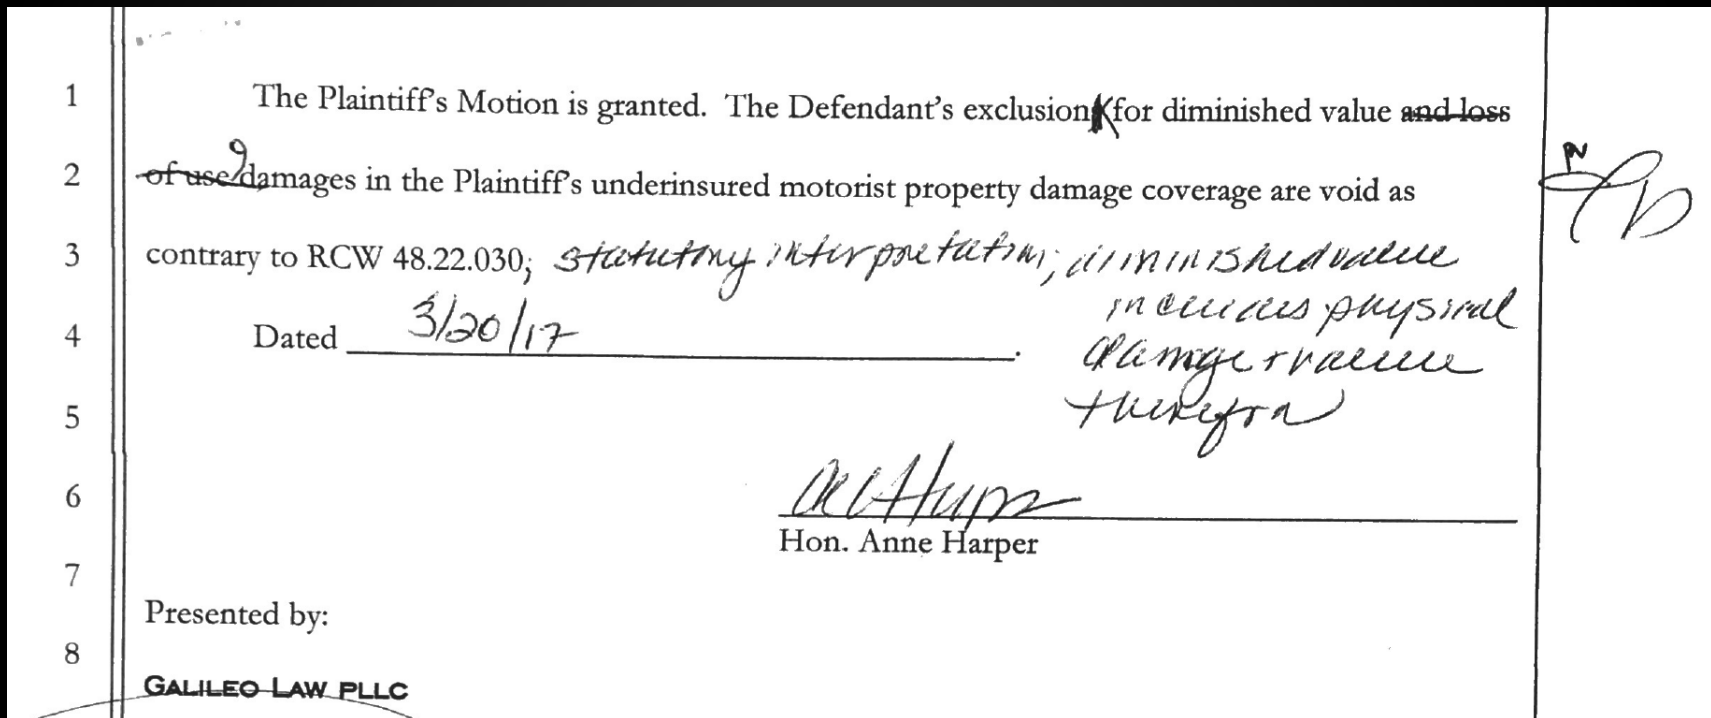 1 The Plaintiff's Motion is granted. The Defendant's exclusion for diminished value and loss
2 of use damages in the Plaintiff's underinsured motorist property damage coverage are void as
3 contrary to RCW 48.22.030; statutory interpretation; diminished value
includes physical
4 Dated 3/20/17.
damage + value
5 therefor
6
Hon. Anne Harper
7
Presented by:
8
GALILEO LAW PLLC